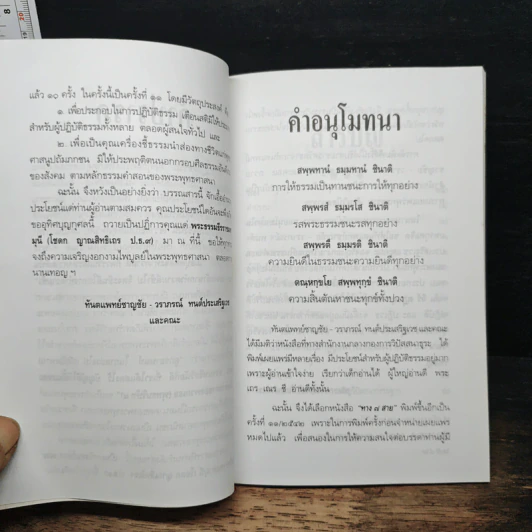 แล้ว ๑๐ ครั้ง ในครั้งนี้เป็นครั้งที่ ๑๑ โดยมีวัตถุประสงค์
๑ เพื่อประกอบในการปฏิบัติธรรม เตือนสติมิให้
สำหรับผู้ปฏิบัติธรรมทั้งหลาย ตลอดผู้สนใจทั่วไป และ
๒. เพื่อเป็นคุณเครื่องชี้ธรรมนำส่องทางชีวิต
ศาสนูปถัมภกชน มิให้ประพฤติตนนอกกรอบศีลธรรมอันดี
ของสังคม ตามหลักธรรมคำสอนของพระพุทธศาสนา
ฉะนั้น จึงหวังเป็นอย่างยิ่งว่า บรรณสารนี้ จักเอื้อ
ประโยชน์แด่ท่านผู้อ่านตามสมควร คุณประโยชน์ใดอันจะพึง
ขออุทิศบุญกุศลนี้ ถวายเป็นปฏิการคุณแด่ พระธรรมธีรราช
มุนี (โชดก ญาณสิทธิเถร ป.ธ.๙) มา ณ ที่นี้ ขอให้ทุก
จงถึงความเจริญงอกงามไพบูลย์ในพระพุทธศาสนา ตลอด
นานเทอญ ฯ
ทันตแพทย์ชาญชัย - วราภรณ์ ทนต์ประเสริฐเวช
และคณะ
คำอนุโมทนา
สพฺพทานํ ธมฺมทานํ ชินาติ
การให้ธรรมเป็นทานชนะการให้ทุกอย่าง
สพฺพรสํ ธมฺมรโส ชินาติ
รสพระธรรมชนะรสทุกอย่าง
สพฺพรตึ ธมฺมรติ ชินาติ
ความยินดีในธรรมชนะความยินดีทุกอย่าง
ตณฺหกฺขโย สพฺพทุกฺขํ ชินาติ
ความสิ้นตัณหาชนะทุกข์ทั้งปวง
ทันตแพทย์ชาญชัย - วราภรณ์ ทนต์ประเสริฐเวช และคณะ
ได้มีมติว่าหนังสือที่ทางสำนักงานกลางกองการวิปัสสนาธุระ ได้
พิมพ์เผยแพร่มีหลายเรื่อง มีประโยชน์สำหรับผู้ปฏิบัติธรรมอยู่มาก
เพราะผู้อ่านเข้าใจง่าย เรียกว่าเด็กอ่านได้ ผู้ใหญ่อ่านดี พระ
เถร เณร ชี อ่านดีทั้งนั้น
ฉะนั้น จึงได้เลือกหนังสือ "ทาง ๗ สาย" พิมพ์ขึ้นอีกเป็น
ครั้งที่ ๑๑/๒๕๔๒ เพราะในการพิมพ์ครั้งก่อนจำหน่ายเผยแพร่
หมดไปแล้ว เพื่อสนองในการให้ความสนใจต่อบรรดาท่านผู้มี